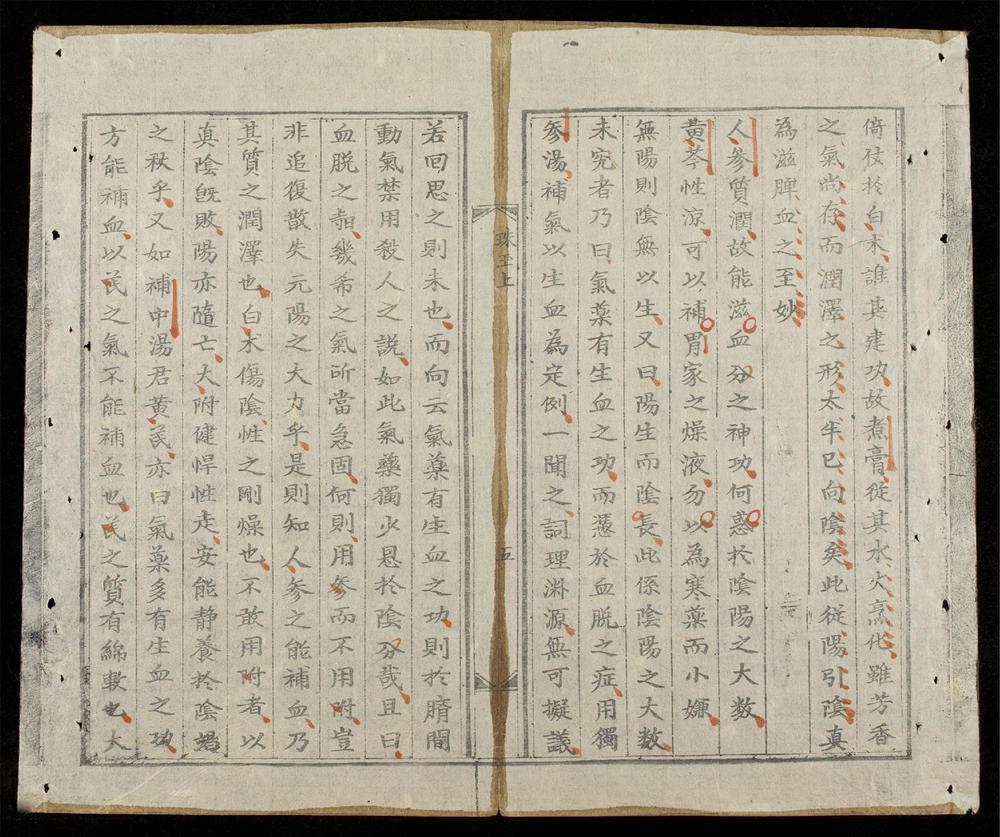 倚仗扵白朮誰其建功故煮膏從其水火烹化雖芳香
之氣尚存而潤澤之形太半已向陰矣此從陽引陰真
為滋脾血之至妙
人參質潤故能滋血分之神功何惑扵陰陽之大数
黃芩性凉可以補胃家之燥液勿以為寒藥而小嫌
無陽則陰無以生又曰陽生而陰長此係陰陽之大数
未究者乃曰氣藥有生血之功而慿於血脱之症用獨
參湯補氣以生血為定例一聞之詞理淋源無可擬議
珠玉上
五
若回思之則未也而向云氣藥有生血之功則扵臍間
動氣禁用殺人之説如此氣藥獨少恩扵陰分哉且曰
血脱之
幾希之氣所當急固何則用參而不用附豈
非追復散失元陽之大力乎是則知人參之能補血乃
其質之潤澤也白朮傷陰性之剛燥也不敢用附者以
真陰旣敗陽亦隨亡大附健悍性走安能静養扵陰
之秋乎又如補中湯君黃芪亦曰氣藥多有生血之功
方能補血以芪之氣不能補血也芪之質有綿軟也大